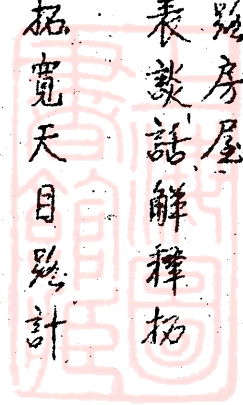 路房屋
表談話解釋拓
拓寬天目路計